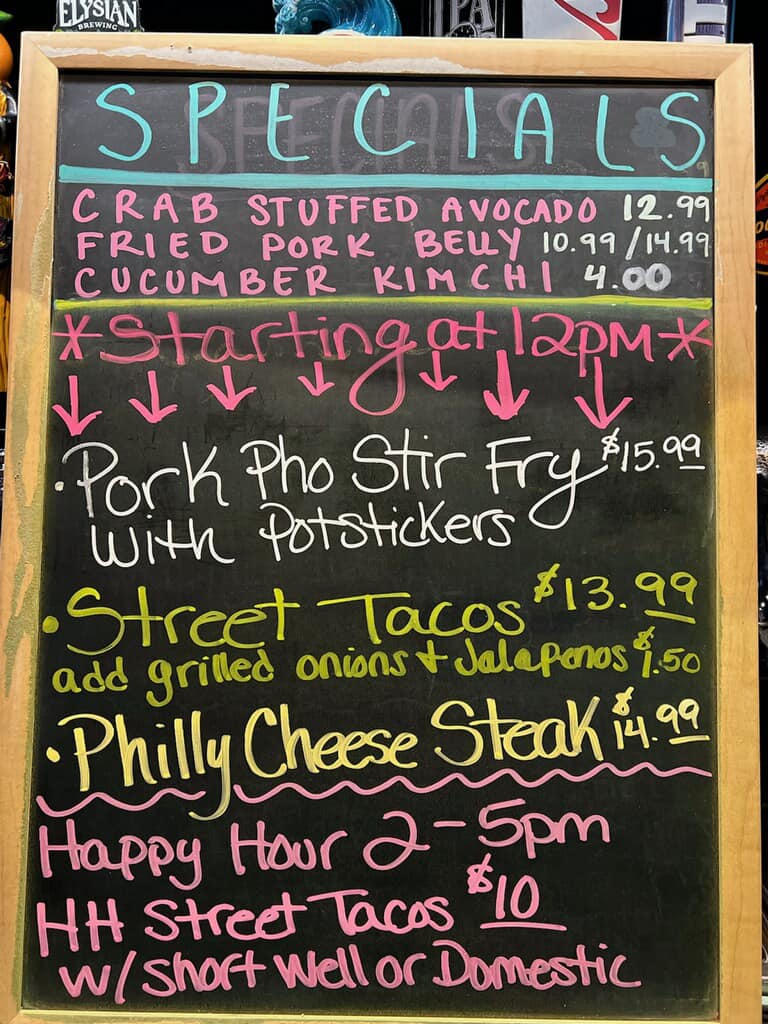 ELYSIAN
BREWING
IPA
SPECIALS
CRAB STUFFED AVOCADO 12.99
FRIED PORK BELLY 10.99/14.99
CUCUMBER KIMCHI 4.00
*Starting at 12pm*
·Pork Pho Stir Fry $15.99
with Potstickers
·Street Tacos $13.99
add grilled onions + Jalapenos $1.50
·Philly Cheese Steak $14.99
Happy Hour 2-5pm
HH Street Tacos $10
w/ Short Well or Domestic